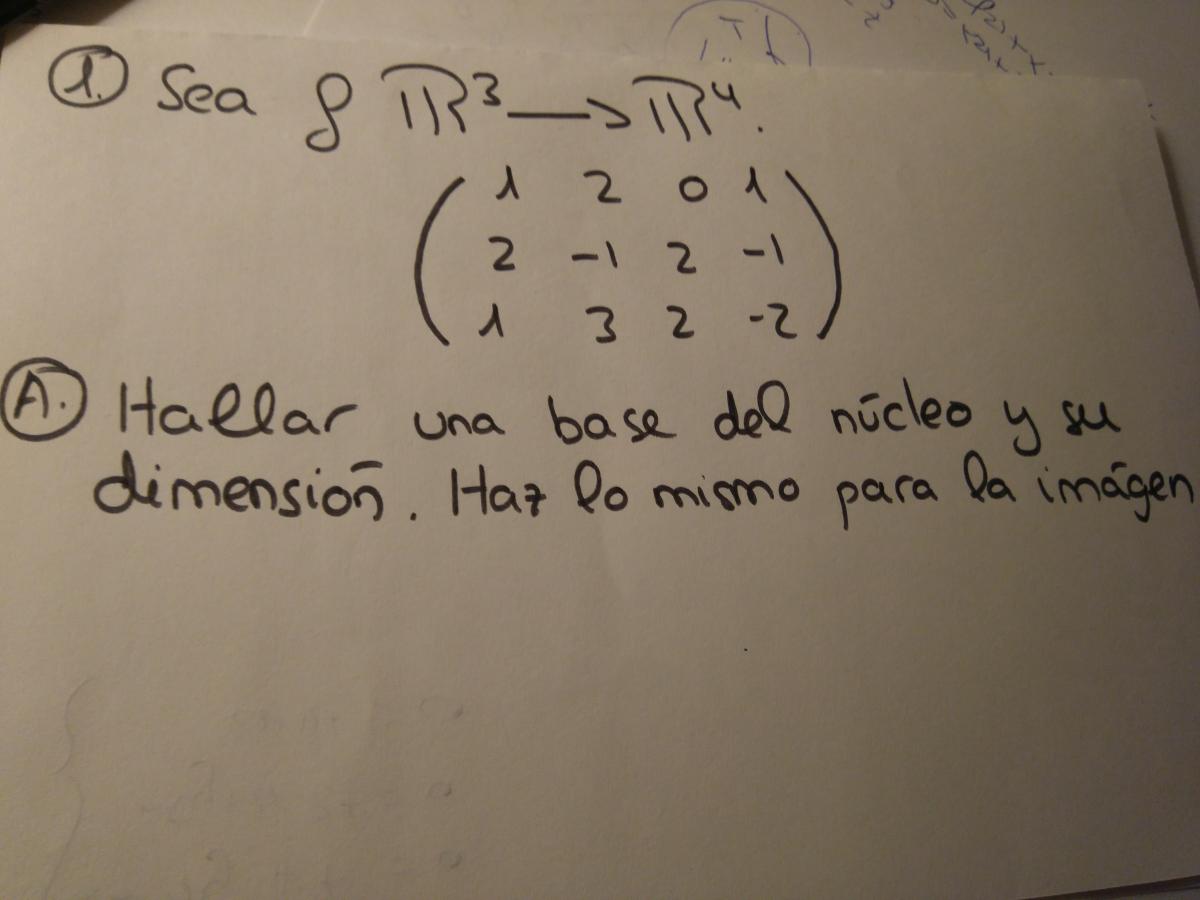 1. Sea f ℝ³ → ℝ⁴.
1 2 0 1
2 -1 2 -1
1 3 2 -2
A. Hallar una base del núcleo y su
dimensión. Haz lo mismo para la imágen